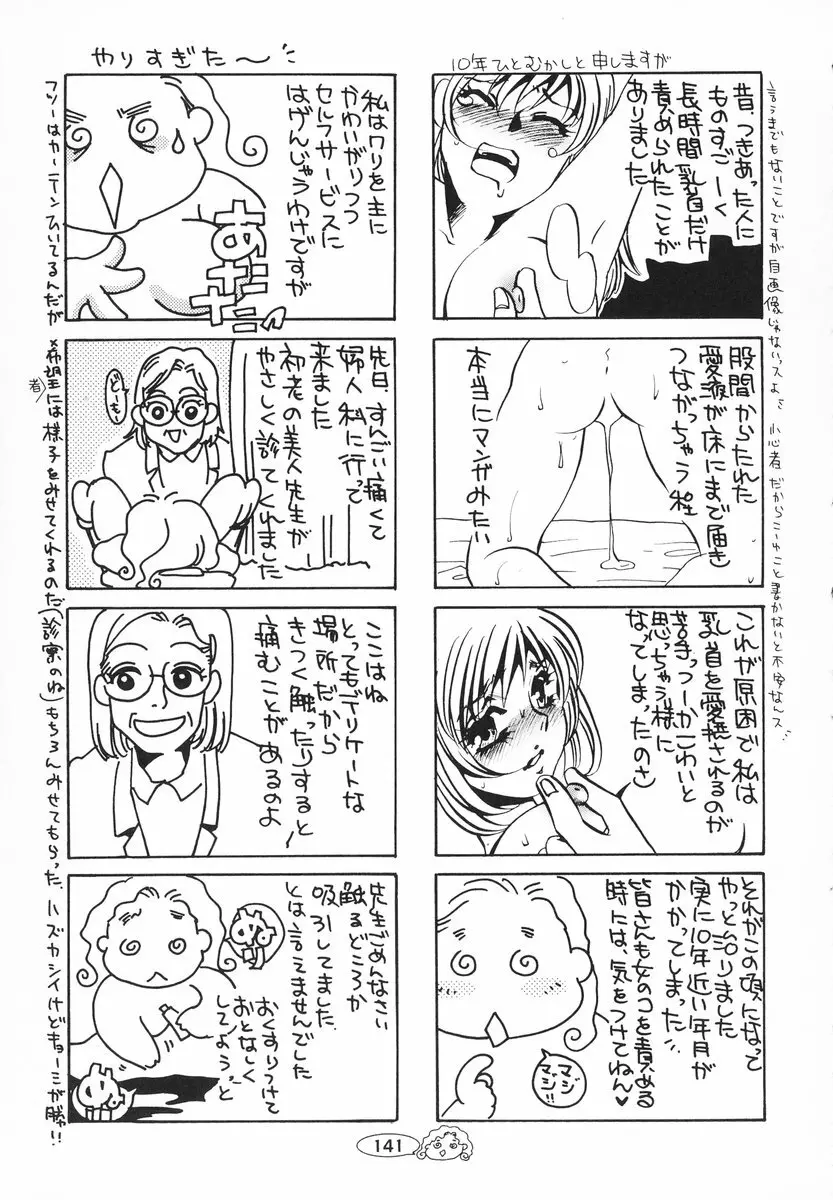 10年ひとむかしと申しますが
昔、つきあった人に
ものすごーく
長時間乳首だけ
責められたことが
ありました
股間からたれた
愛液が床にまで届き
つながっちゃう程
本当にマンガみたい
これが原因で私は
乳首を愛撫されるのが
苦手っつーかこわいと
思っちゃう様に
なってしまったのさ
それがこの頃になって
やっと治りました
実に10年近い年月が
かかってしまった
皆さんも女のコを責める
時には、気をつけてねん♥
マジ
マジ!!
言うまでもないことですが自画像じゃないスよ
小心者だからこーゆこと書かないと不安なんス
やりすぎた〜
私はワリを主に
かわいがりつつ
セルフサービスに
はげんじゃうわけですが
あだだ
先日、すんごい痛くて
婦人科に行って
来ました
初老の美人先生が
やさしく診てくれました
どーもー
ここはね
とってもデリケートな
場所だから
きつく触ったりすると
痛むことがあるのよ
先生ごめんなさい
触るどころか
吸引してました
とは言えませんでした
おくすりつけて
おとなしく
してようっと
フツーはカーテンひいてるんだが
*希望者には様子をみせてくれるのだ(診察のね)もちろんみせてもらった、ハズカシイけどキョーミが勝ァ!!
141